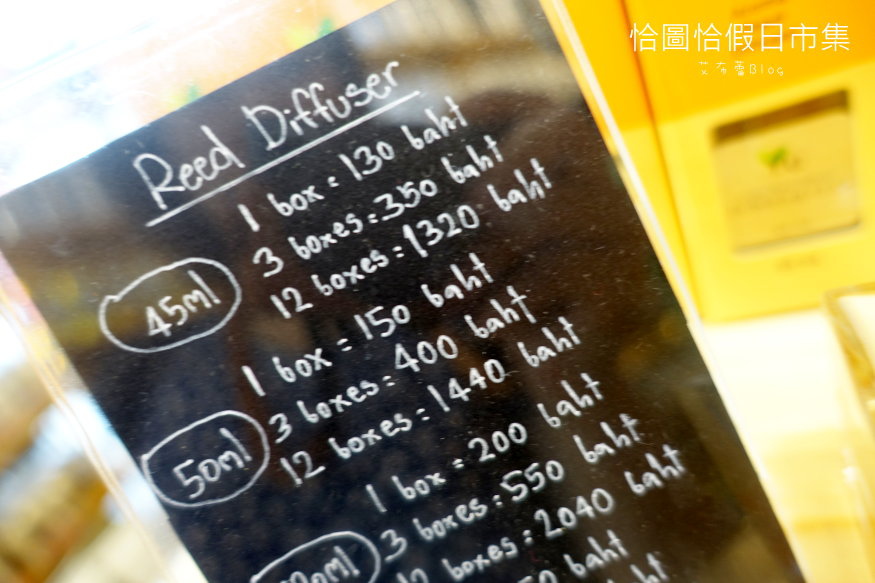 恰圖恰假日市集
艾布蕾Blog
Reed Diffuser
1 box = 130 baht
3 boxes = 350 baht
12 boxes = 1320 baht
45ml
1 box = 150 baht
3 boxes = 400 baht
12 boxes = 1440 baht
50ml
1 box = 200 baht
3 boxes = 550 baht
12 boxes = 2040 baht
baht
baht